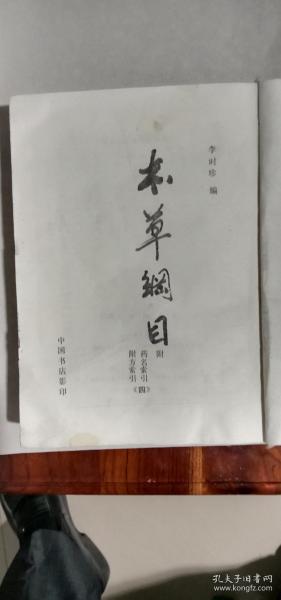 李时珍 编
本草綱目
附 药名索引
附方索引 (四)
中国书店影印
孔夫子旧书网
www.kongfz.com